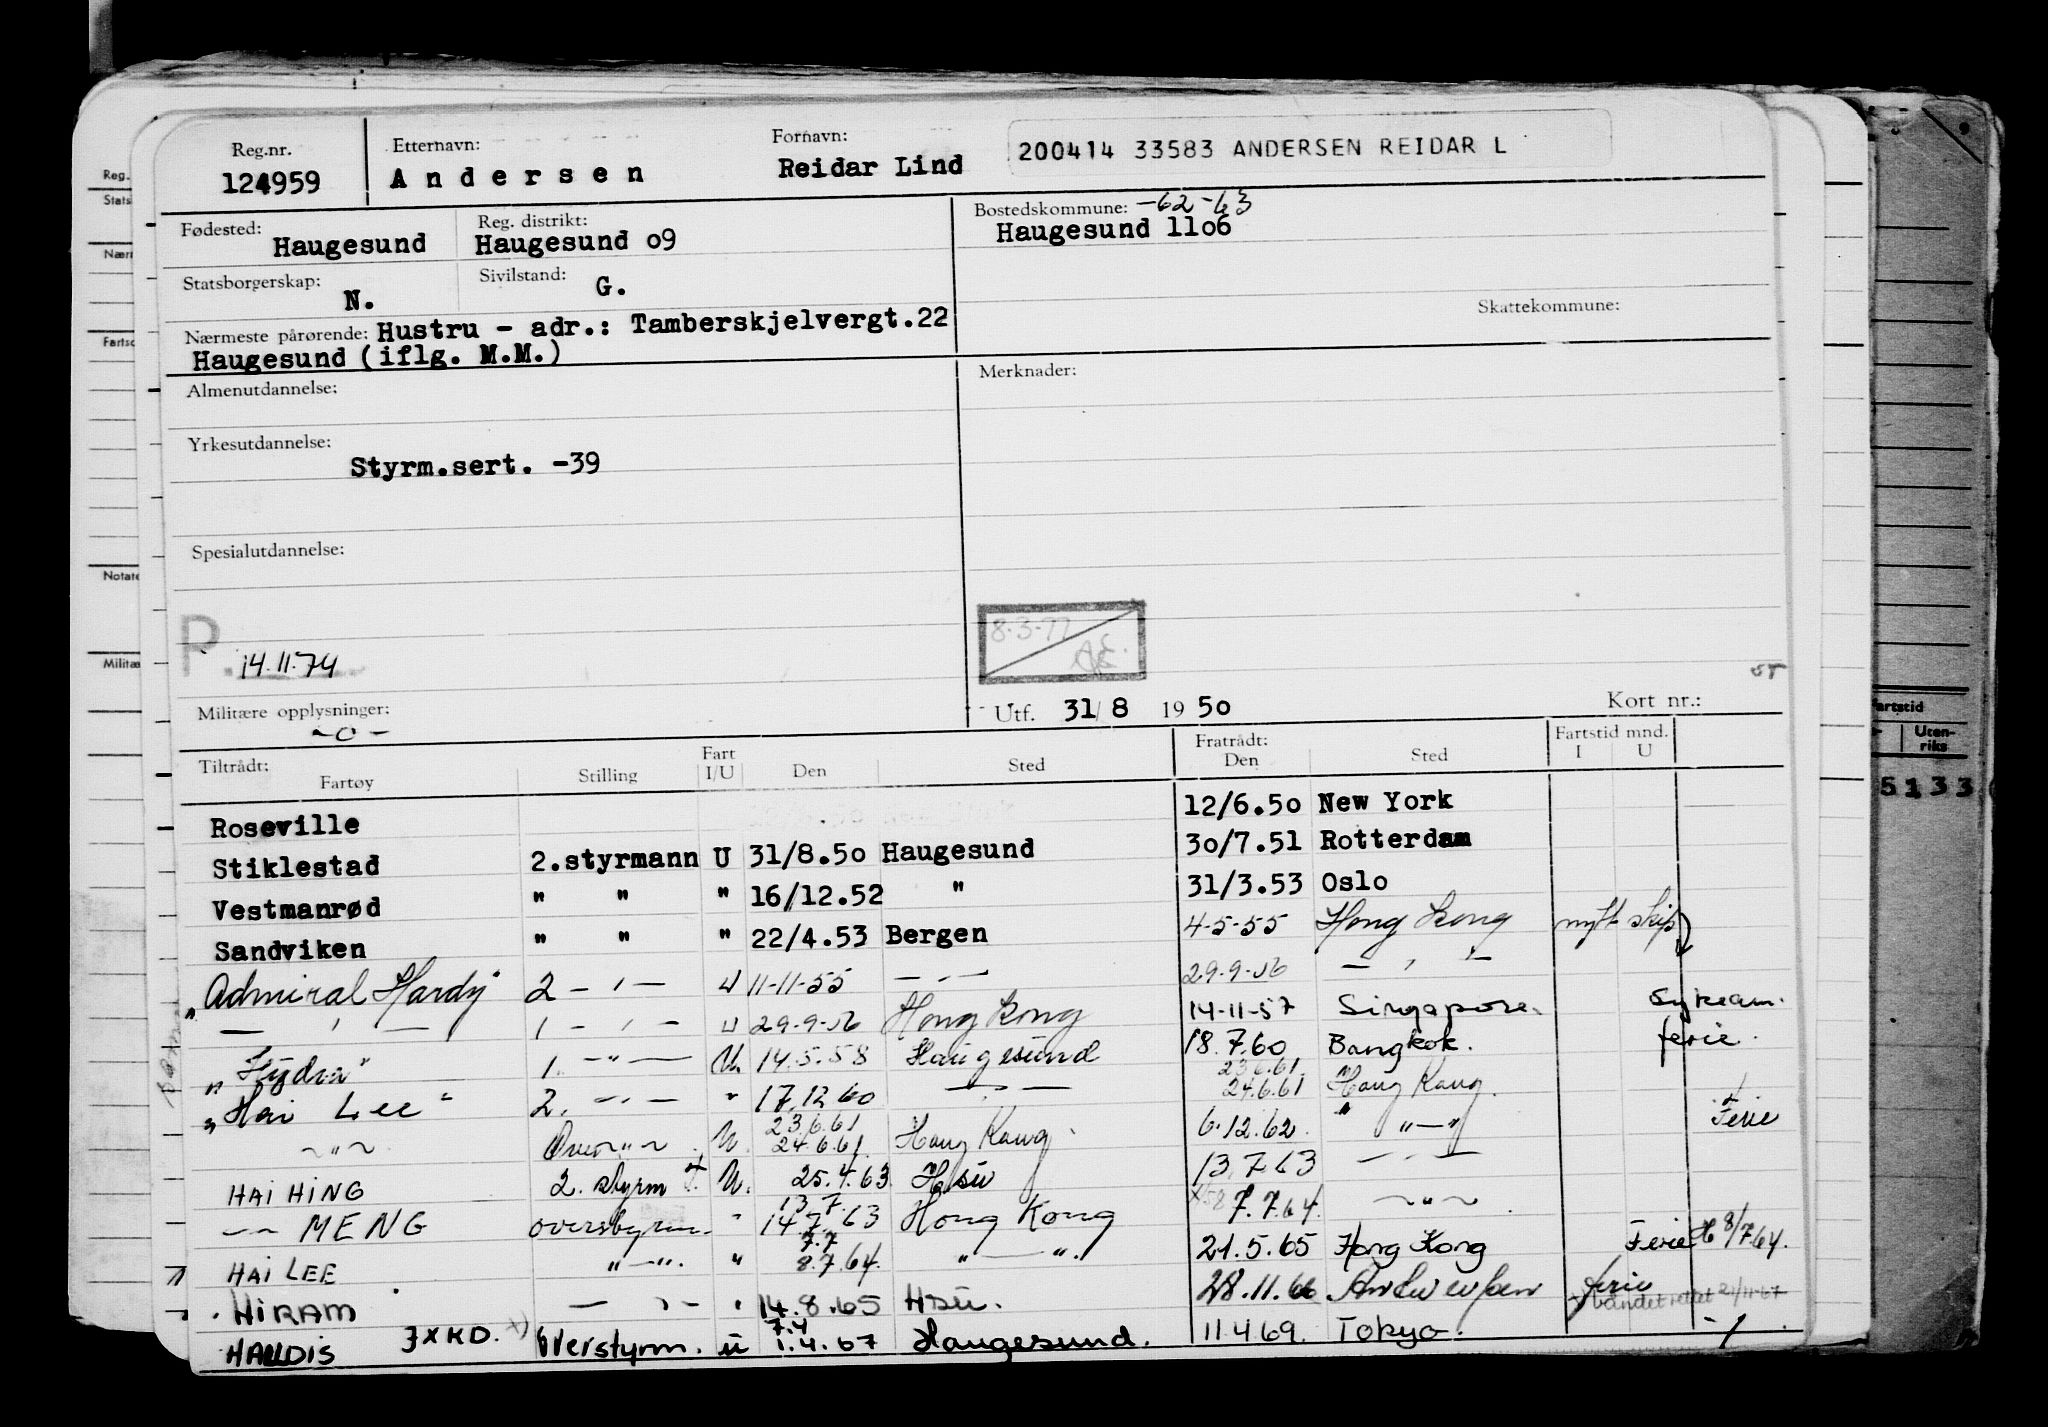 Reg.nr. Etternavn: Fornavn:
124959 Andersen Reidar Lind 200414 33583 ANDERSEN REIDAR L
Fødested: Haugesund Reg. distrikt: Haugesund o9 Bostedskommune: -62-63
Haugesund 11o6
Statsborgerskap: N. Sivilstand: G.
Skattekommune:
Nærmeste pårørende: Hustru - adr.: Tamberskjelvergt.22
Haugesund (iflg. M.M.)
Almenutdannelse: Merknader:
Yrkesutdannelse:
Styrm.sert. -39
Spesialutdannelse:
8.3-77
P. 14.11.74
Militære opplysninger: Utf. 31/8 1950 Kort nr.:
-o-
Tiltrådt: Fratrådt: Fartstid mnd.
Fartøy Stilling Fart I/U Den Sted Den Sted I U
Roseville 12/6.5o New York
Stiklestad 2.styrmann U 31/8.5o Haugesund 3o/7.51 Rotterdam
Vestmanrød " " " 16/12.52 " 31/3.53 Oslo
Sandviken " " " 22/4.53 Bergen 4-5-55 Hong Kong nytt skip
"Admiral Hardy" 2 - " - U 11-11-55 - " - 29-9-56 - " -
- " - 1 - " - U 29-9-56 Hong Kong 14-11-57 Singapore. sykeavm.
"Hydra" 1. - " - U. 14.5.58 Haugesund 18.7.60 Bangkok. ferie.
"Hai Lee" 2. - " - " 17.12.60 - " - 23.6.61 24.6.61 Hong Kong.
- " - Over - " - U. 23.6.61 24.6.61 Hong Kong. 6.12.62. " - " Ferie
HAI HING 2. styrm U. 25.4.63 Hsu 13.7.63 - " -
- " - MENG overstyrm. " 13.7. 14.7.63 Hong Kong 7.7.64. - " -
HAI LEE " - ". " 7.7 8.7.64. " - ". 21.5.65 Hong Kong Ferie 8/7.64.
HIRAM - " - " 14.8.65 Hsu. 28.11.66 Antwerpen ferie
HALLDIS 3XKD. x) Overstyrm. U 7.4 1.4.67 Haugesund. 11.4.69. Tokyo.
Reg.
Stats
Nærr
Fartsc
Notate
Militæ
artstid
Uten-
riks
5133